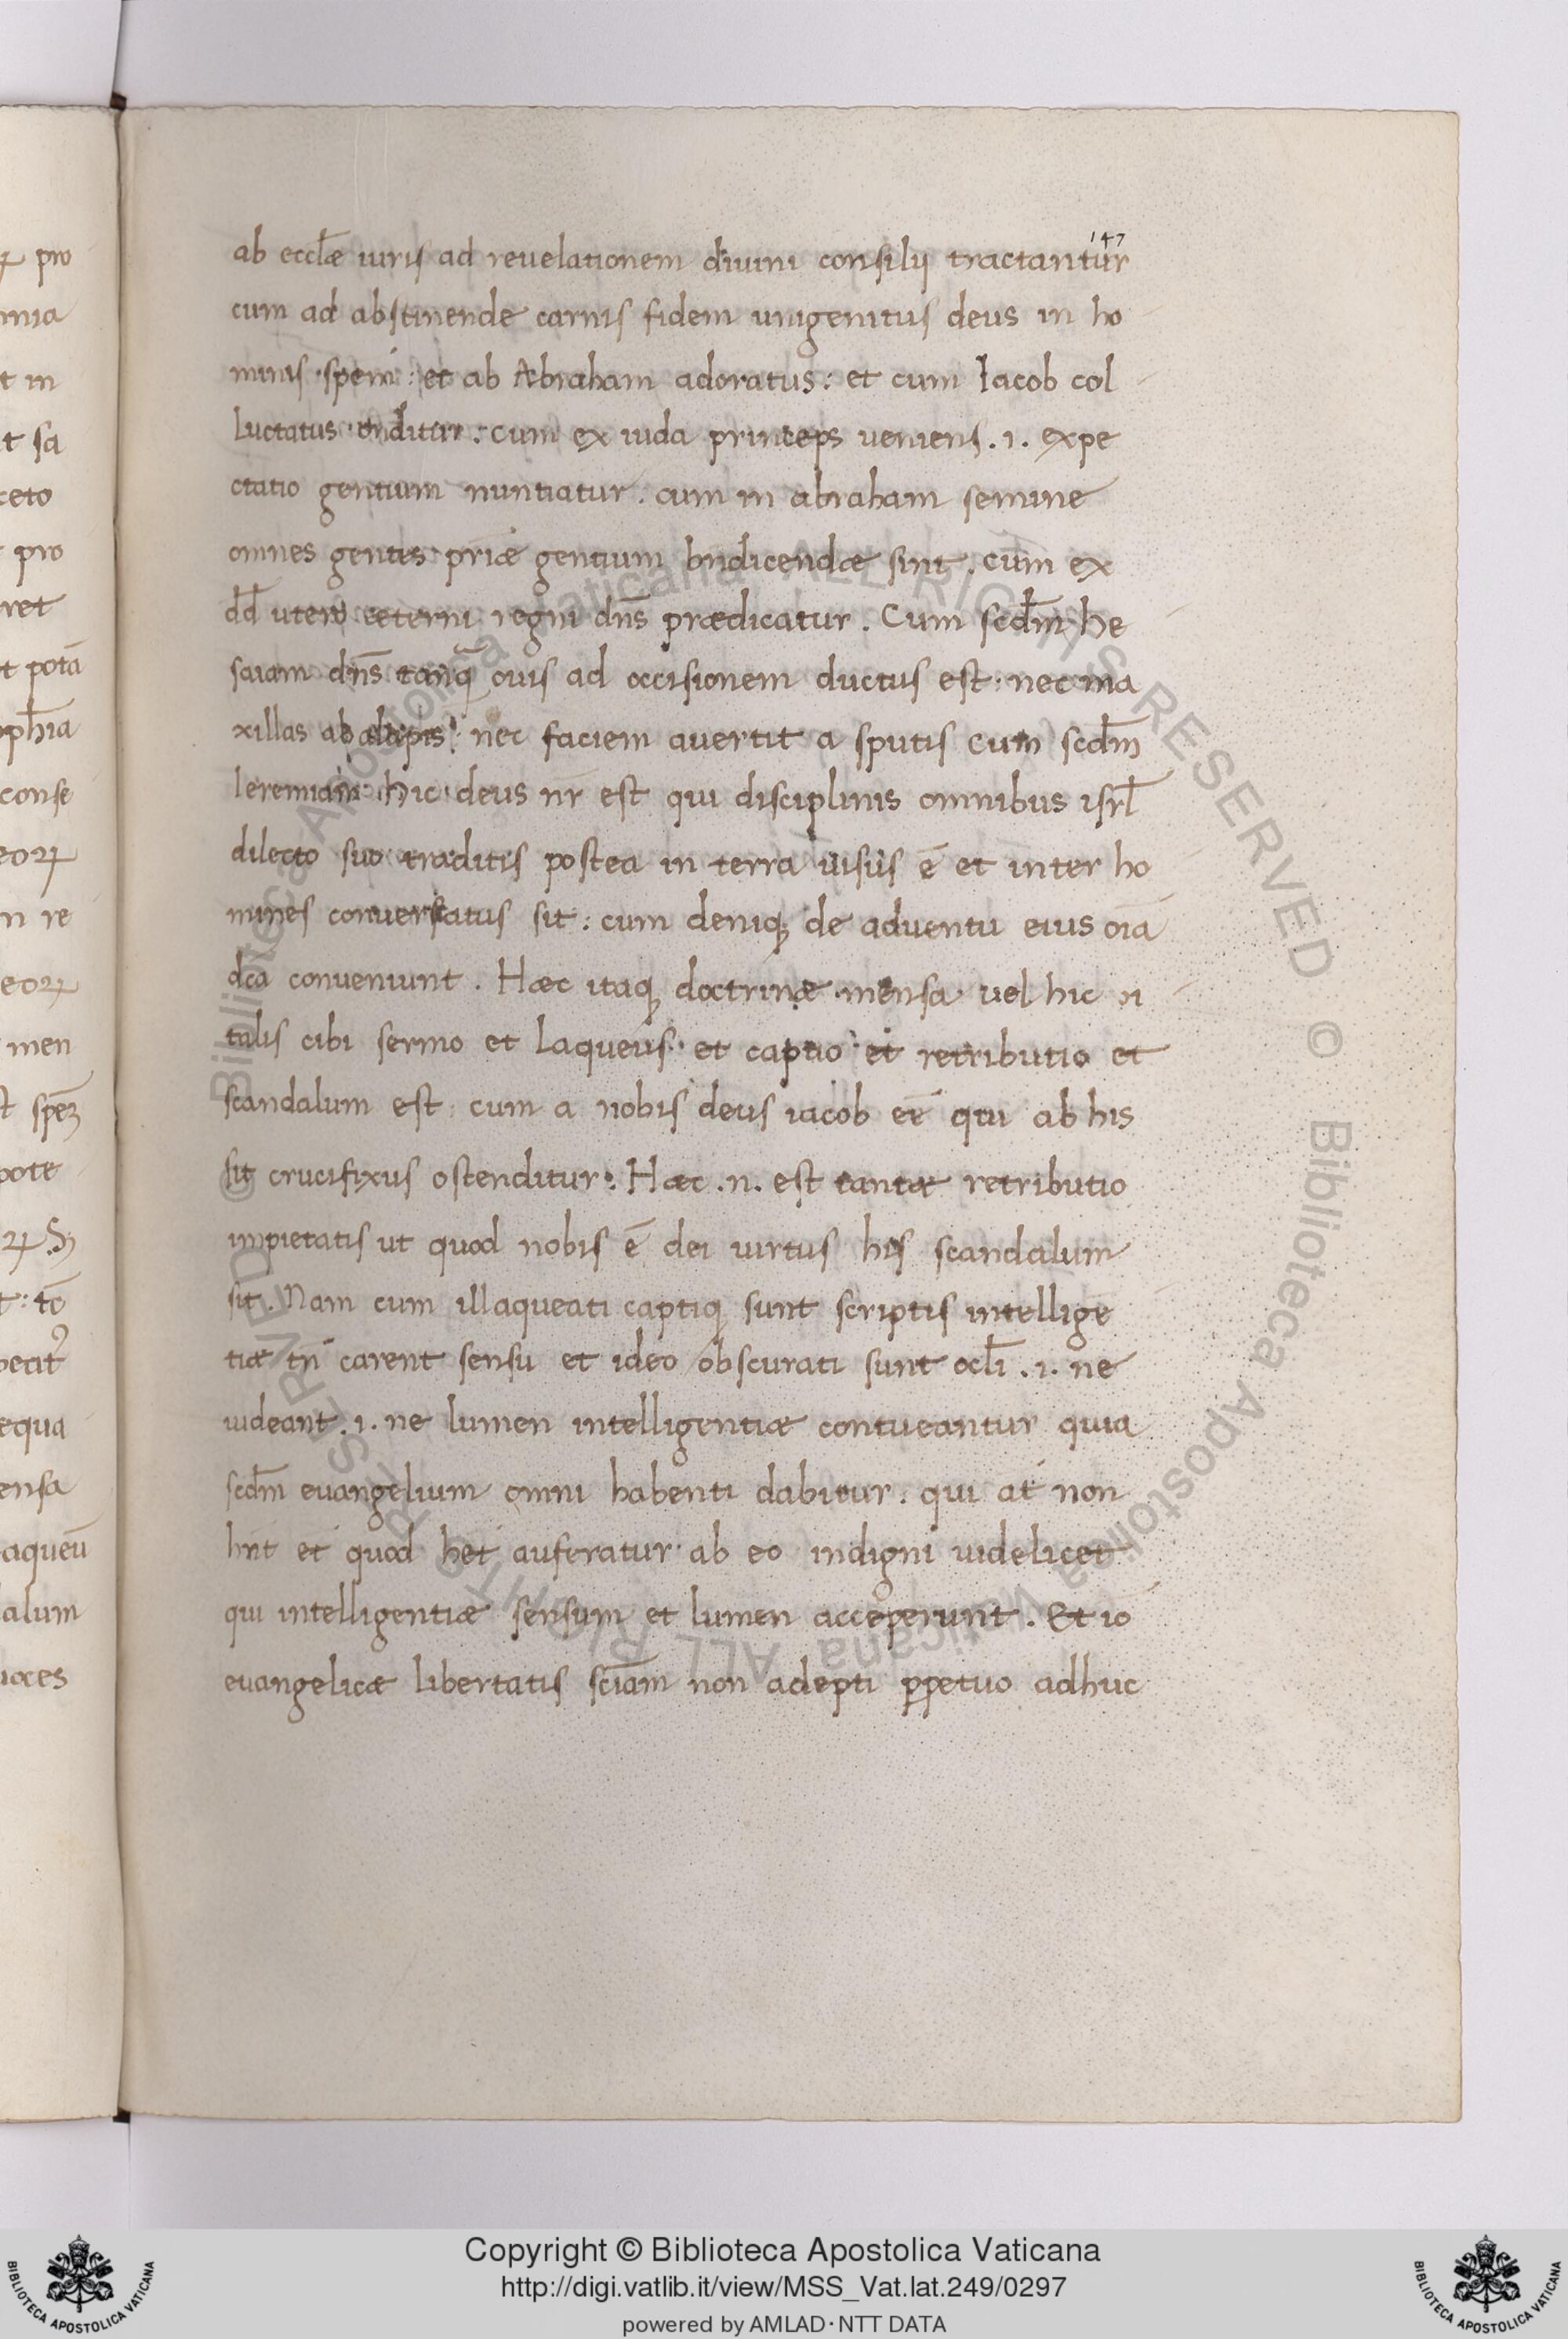 147
ab eccl̄æ iuris ad reuelationem diuini consilij tractantur
cum ad abstinende carnis fidem unigenitus deus in ho
minis spem : et ab Abraham adoratus : et cum Iacob col
luctatus ōnditur : cum ex iuda princeps ueniens . i . expe
ctatio gentium nuntiatur . cum in abraham semine
omnes gentes priæ gentium bn̄dicendæ sint . cum ex
dd̄ utero eterni regni dn̄s prædicatur . Cum scd̄m he
saiam dn̄s tanq̄ ouis ad occisionem ductus est : nec ma
xillas ab alapis : nec faciem auertit a sputis cum scd̄m
Ieremiam : hic deus nr̄ est qui disciplinis omnibus isrl̄
dilecto suo traditis postea in terra uisus ē et inter ho
mines conuersatus sit : cum deniq; de aduentu eius oīa
dc̄a conueniunt . Hæc itaq; doctrinæ mensa uel hic ui
talis cibi sermo et laqueus et captio et retributio et
scandalum est : cum a nobis deus iacob eē qui ab his
sit crucifixus ostenditur : Hæc .n. est tantæ retributio
impietatis ut quod nobis ē dei uirtus his scandalum
sit . Nam cum illaqueati captiq; sunt scriptis intelligē
tiæ tn̄ carent sensu et ideo obscurati sunt ocl̄i . i . ne
uideant . i . ne lumen intelligentiæ contueantur quia
scd̄m euangelium omni habenti dabitur . qui at̄ non
hn̄t et quod het̄ auferatur ab eo indigni uidelicet
qui intelligentiæ sensum et lumen acceperunt . Et iō
euangelicæ libertatis sciām non adepti ꝑpetuo adhuc
pro
mia
t in
t sa
ceto
pro
ret
t potā
oph̄ia
conse
eoꝝ
n re
eoꝝ
men
pote
equa
ensa
aqueū
alum
uoces
Biblioteca Apostolica Vaticana ALL RIGHTS RESERVED © Biblioteca Apostolica Vaticana ALL RIGHTS RESERVED ©
BIBLIOTECA APOSTOLICA VATICANA
Copyright © Biblioteca Apostolica Vaticana
http://digi.vatlib.it/view/MSS_Vat.lat.249/0297
powered by AMLAD·NTT DATA
BIBLIOTECA APOSTOLICA VATICANA